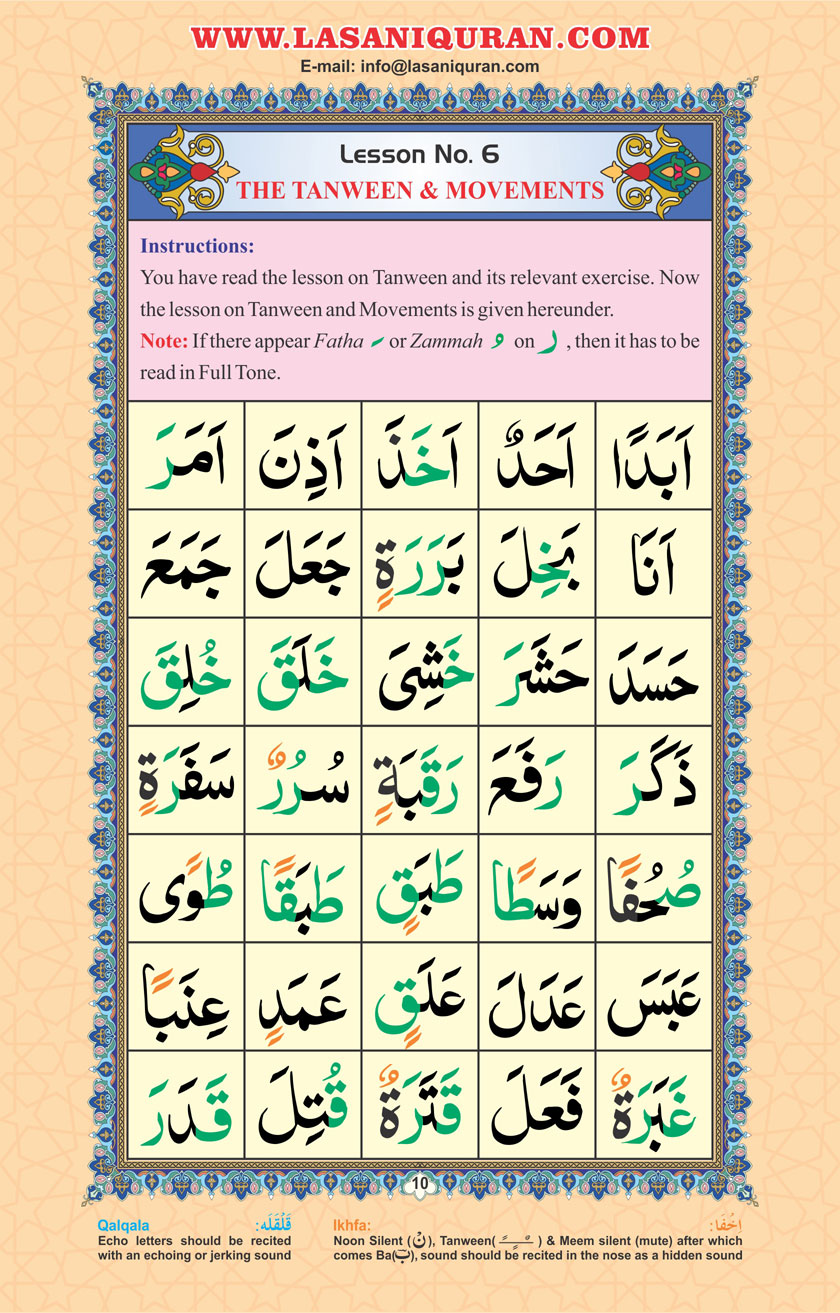 WWW.LASANIQURAN.COM
E-mail: info@lasaniquran.com
Lesson No. 6
THE TANWEEN & MOVEMENTS
Instructions:
You have read the lesson on Tanween and its relevant exercise. Now
the lesson on Tanween and Movements is given hereunder.
Note: If there appear Fatha َ or Zammah ُ on ر , then it has to be
read in Full Tone.
اَبَدًا اَحَدٌ اَخَذَ اَذِنَ اَمَرَ
اَنَا بَخِلَ بَرَرَةٍ جَعَلَ جَمَعَ
حَسَدَ حَشَرَ خَشِىَ خَلَقَ خُلِقَ
ذَكَرَ رَفَعَ رَقَبَةٍ سُرُرٌ سَفَرَةٍ
صُحُفًا وَسَطًا طَبَقٍ طَبَقًا طُوًى
عَبَسَ عَدَلَ عَلَقٍ عَمَدٍ عِنَبًا
غَبَرَةٌ فَعَلَ قَتَرَةٌ قُتِلَ قَدَرَ
10
Qalqala قَلْقَلَه:
Echo letters should be recited
with an echoing or jerking sound
Ikhfa: اِخْفَا:
Noon Silent (نْ), Tanween( ـًـٍـٌ ) & Meem silent (mute) after which
comes Ba(ب), sound should be recited in the nose as a hidden sound